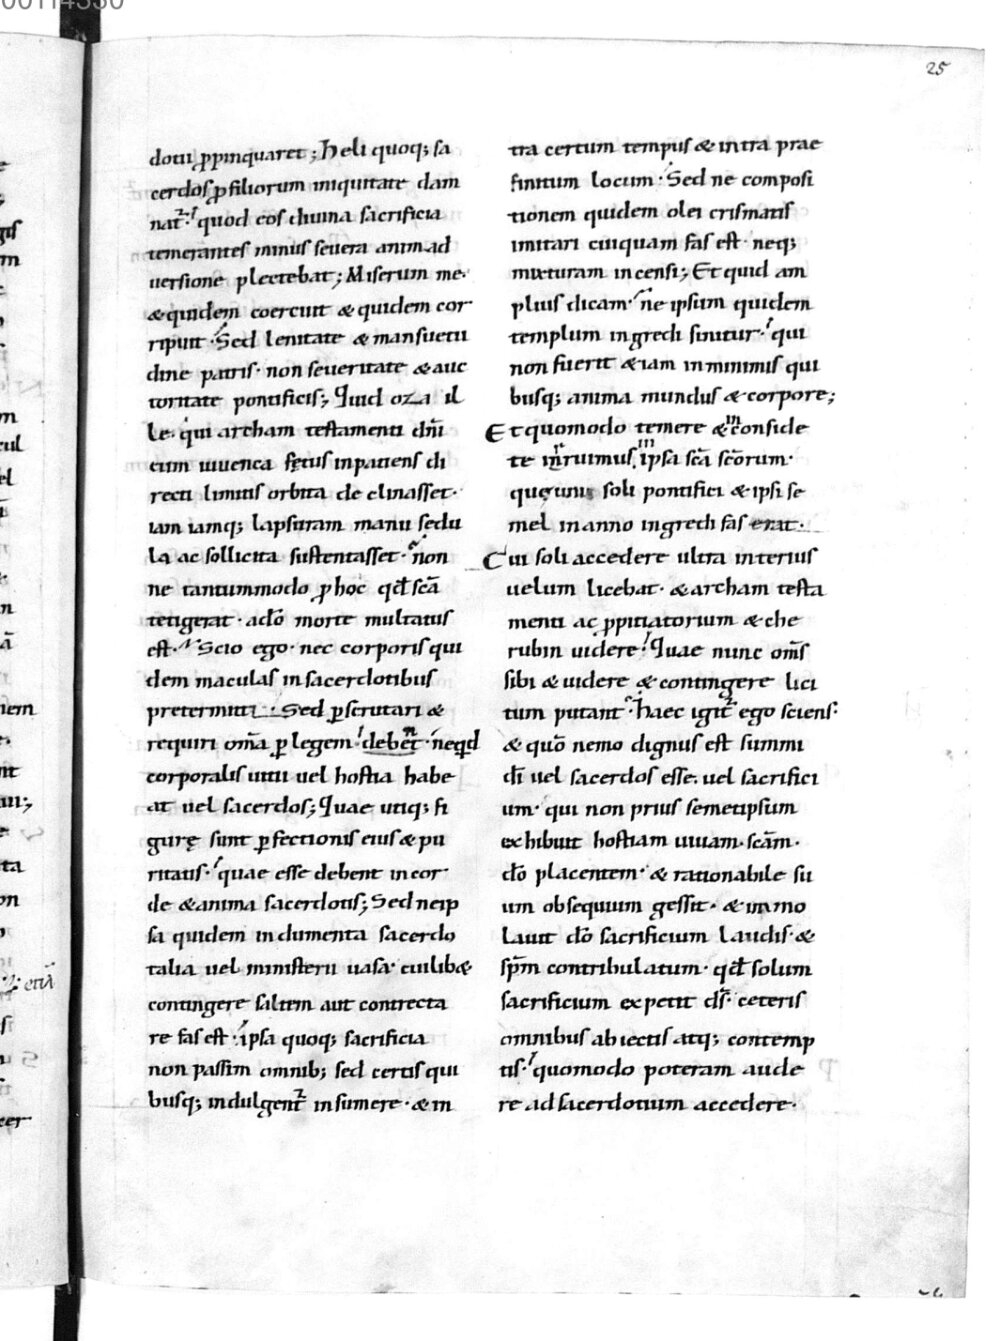 25
dotii ꝓpinquaret; Heli quoq; sa
cerdos ꝓ filiorum iniquitate dam
nat᷑· quod eos diuina sacrificia
temerantes minus seuera animad
uersione plectebat; Miserum me·
& quidem coercuit & quidem cor
ripuit· Sed lenitate & mansuetu
dine patris· non seueritate & auc
toritate pontificis; Quid oza il
le· qui archam testamenti dn̄i
cum iuuenca fętus inpatiens di
recti limitis orbita declinasset·
iam iamq; lapsuram manu sedu
la ac sollicita sustentasset· non
ne tantummodo ꝑ hoc qđ scā
tetigerat· adō morte multatus
est· Scio ego· nec corporis qui
dem maculas in sacerdotibus
pretermitti· Sed ꝑscrutari &
requiri om̄a ꝑ legem· debent· neqd
corporalis uitii uel hostia habe
at uel sacerdos; Quae utiq; fi
gurę sunt ꝑfectionis eius & pu
ritatis· quae esse debent in cor
de & anima sacerdotis; Sed ne ip
sa quidem indumenta sacerdo
talia uel ministerii uasa· cuilib&
contingere saltem aut contrecta
re fas est· ipsa quoq; sacrificia
non passim omnib; sed certis qui
busq; indulgent᷑ insumere· & in
tra certum tempus & intra prae
finitum locum· Sed ne composi
tionem quidem olei crismatis
imitari cuiquam fas est· neq;
mixturam incensi; Et quid am
plius dicam· ne ipsum quidem
templum ingredi sinitur· qui
non fuerit & iam in minimis qui
busq; anima mundus & corpore;
Et quomodo temere & confide
te irruimus, ipsa scā scōrum·
soli pontifici & ipsi se
mel in anno ingredi fas erat·
Cui soli accedere ultra interius
uelum licebat· & archam testa
menti ac ꝓpitiatorium & che
rubin uidere· Quae nunc om̄s
sibi & uidere & contingere lici
tum putant· haec igit᷑ ego sciens·
& quō nemo dignus est summi
dī uel sacerdos esse· uel sacrifici
um· qui non prius semetipsum
exhibuit hostiam uiuam· scām·
dō placentem· & rationabile su
um obsequium gessit· & immo
lauit dō sacrificium laudis· &
sp̄m contribulatum· qđ solum
sacrificium expetit ds̄· ceteris
omnibus abiectis atq; contemp
tis· quomodo poteram aude
re ad sacerdotium accedere·